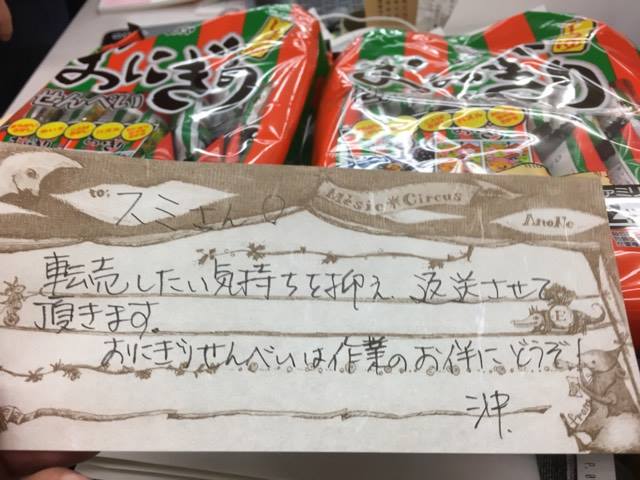 おにぎり
せんべい
おにぎり
to: スミさん♡
Music✳Circus
AnoNe
転売したい気持ちを抑え、返送させて
頂きます。
おにぎりせんべいは作業のお伴にどうぞ!
E
from
沖.